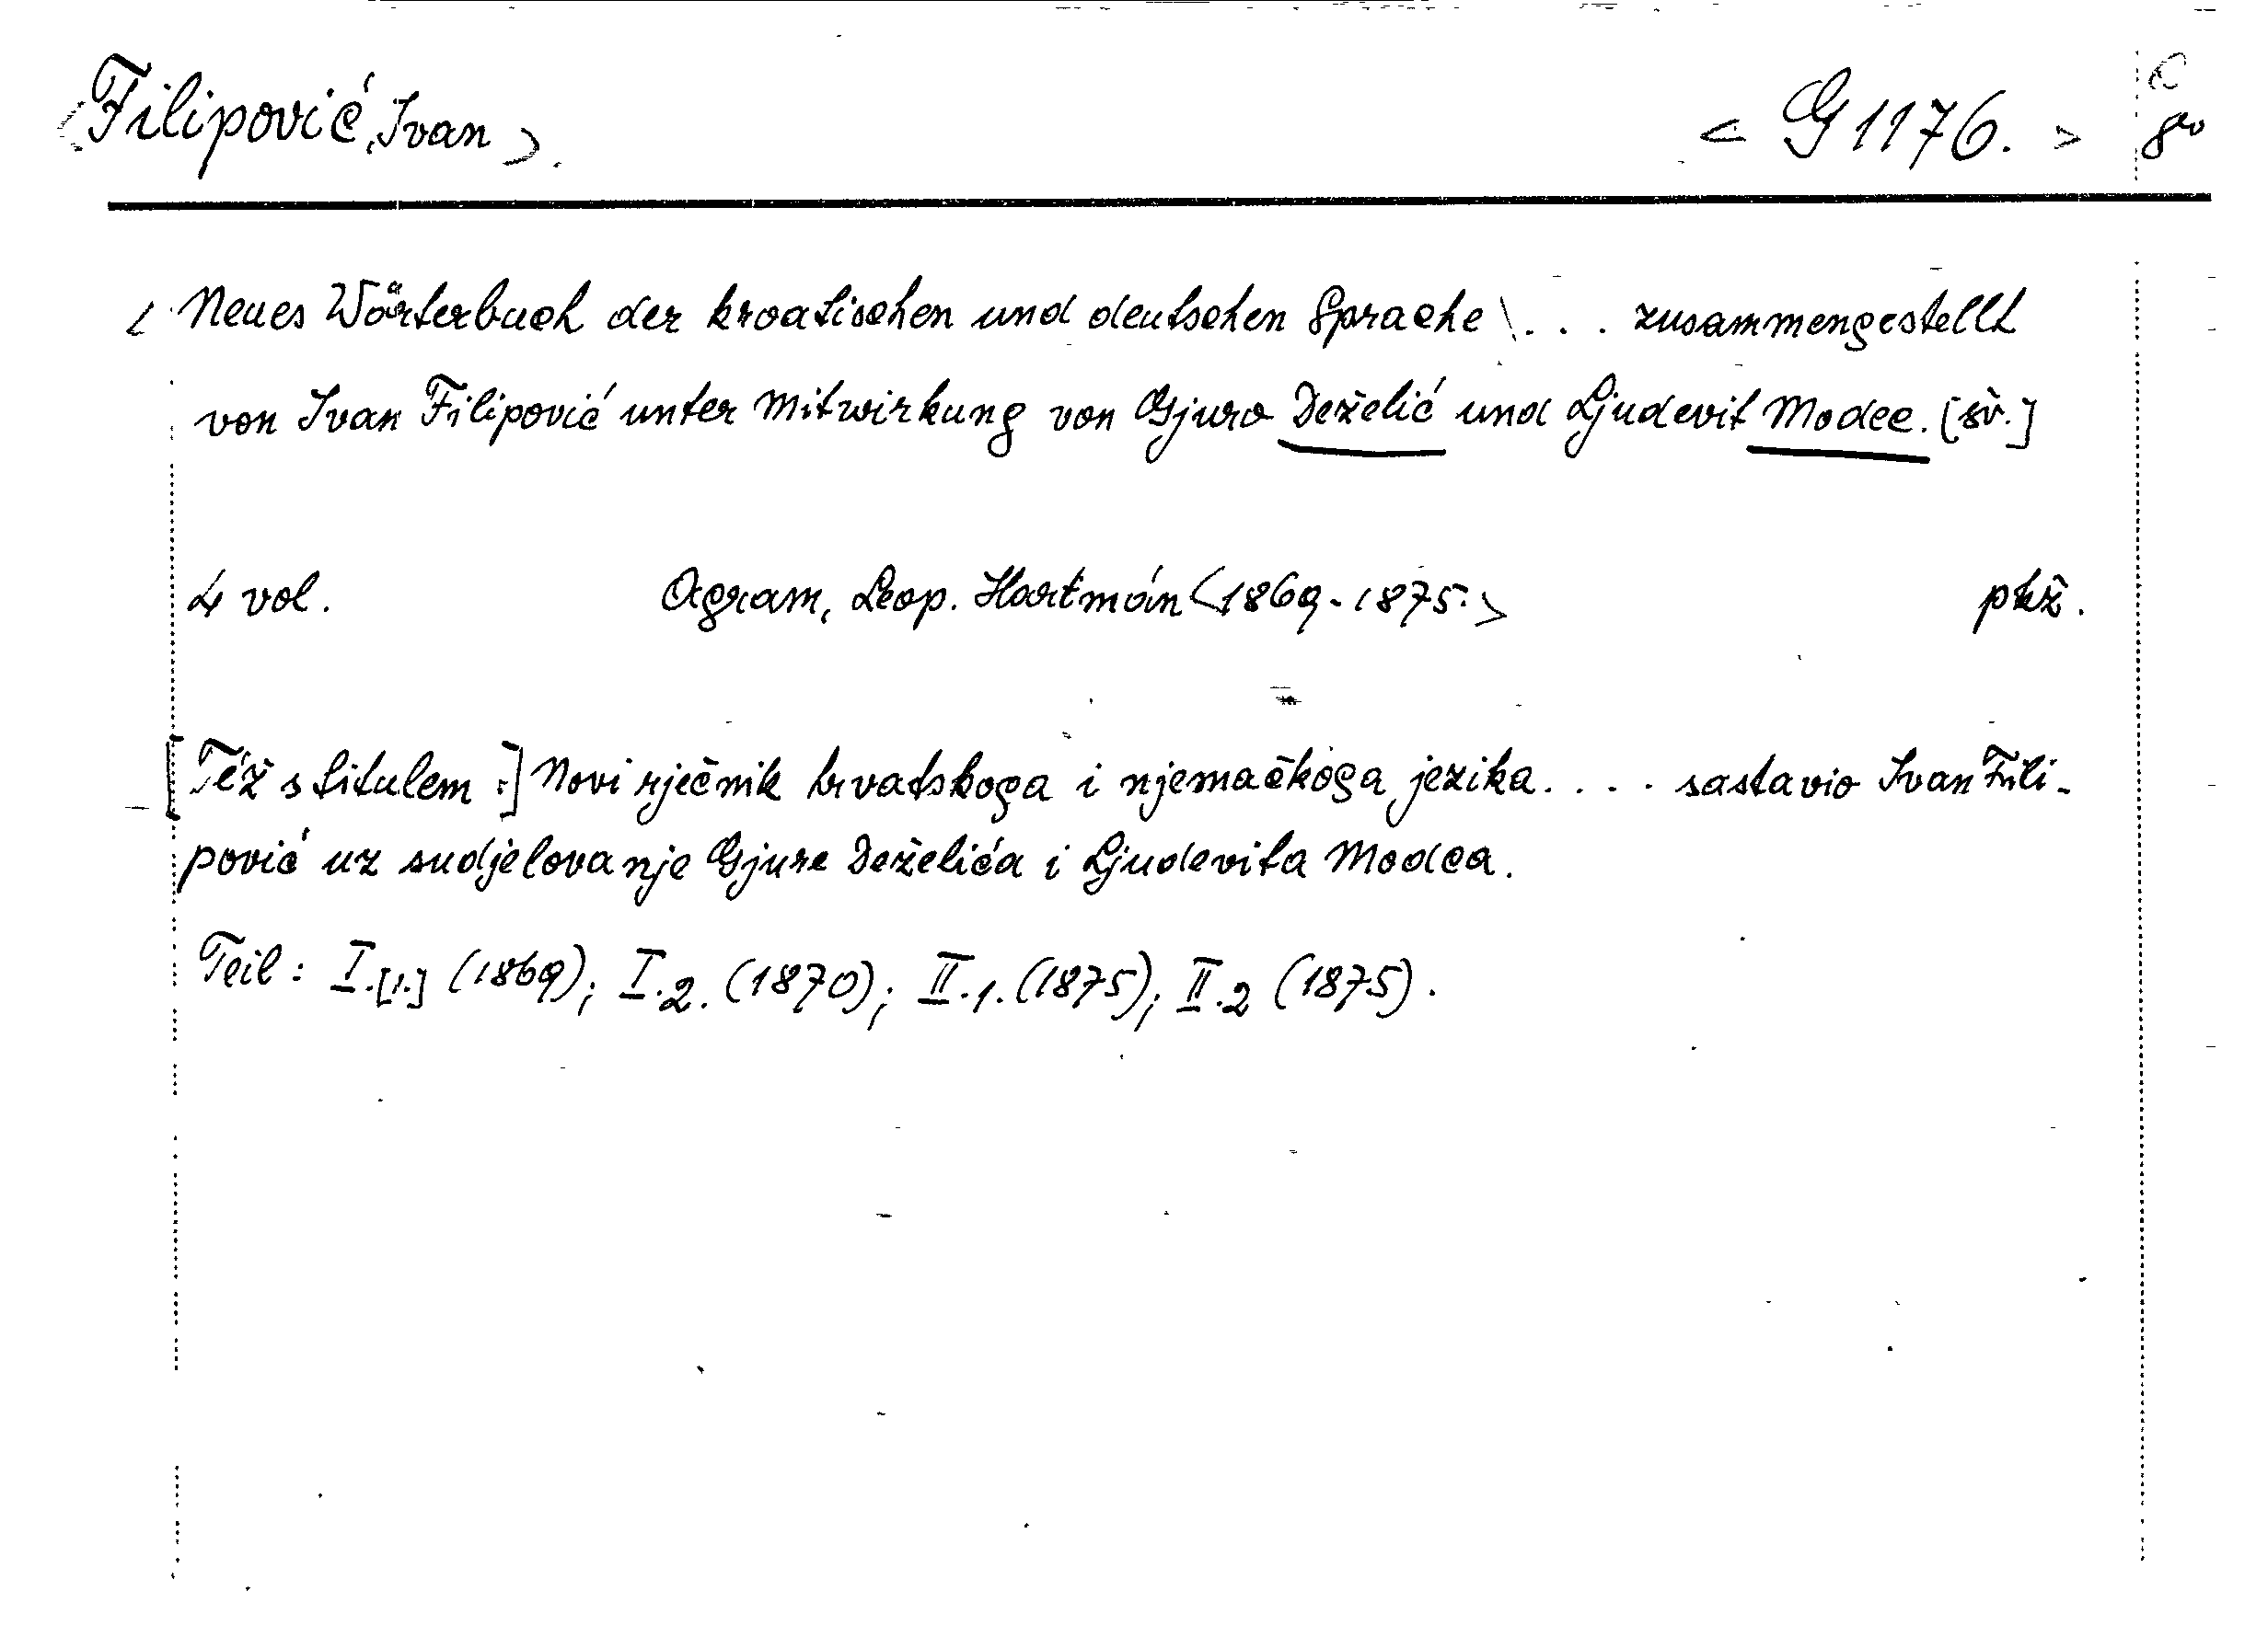 <Filipović, Ivan>. <G 1176.> C 8vo
<Neues Wörterbuch der kroatischen und deutschen Sprache \ . . . zusammengestellt
von Ivan Filipović unter Mitwirkung von Gjuro Deželić und Ljudevit Modec. [šv.]
4 vol. Agram, Leop. Hartmán <1869-1875.> pkž.
[Též s titulem :] Novi rječnik hrvatskoga i njemačkoga jezika. . . . sastavio Ivan Fili-
pović uz sudjelovanje Gjure Deželića i Ljudevita Modca.
Teil : I.[1.] (1869); I.2. (1870); II.1. (1875); II.2 (1875).